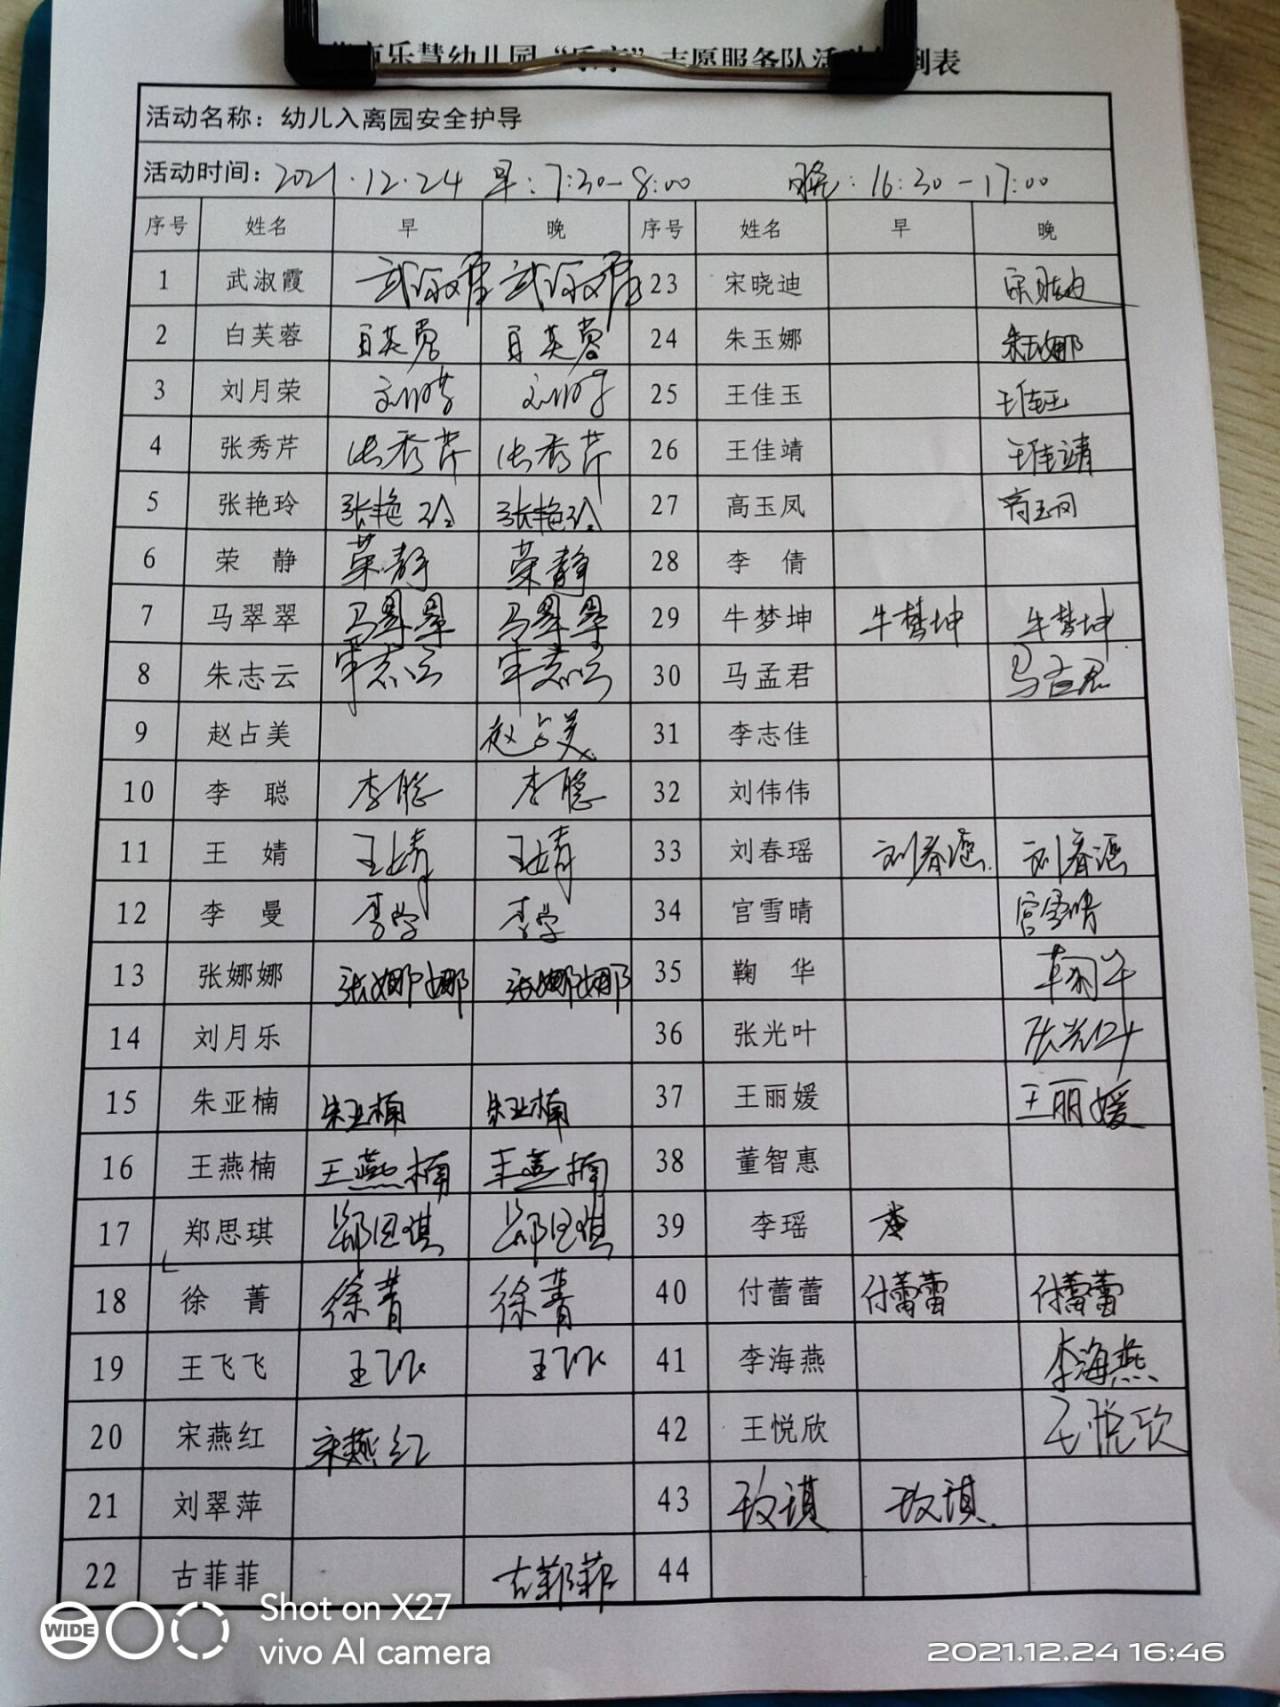 乐慧幼儿园“乐 ”志愿服务队活 到表
活动名称：幼儿入离园安全护导
活动时间：2021.12.24 早：7:30-8:00 晚：16:30-17:00
序号 姓名 早 晚 序号 姓名 早 晚
1 武淑霞 武淑霞 武淑霞 23 宋晓迪 宋晓迪
2 白芙蓉 白芙蓉 白芙蓉 24 朱玉娜 朱玉娜
3 刘月荣 刘月荣 刘月荣 25 王佳玉 王佳玉
4 张秀芹 张秀芹 张秀芹 26 王佳靖 王佳靖
5 张艳玲 张艳玲 张艳玲 27 高玉凤 高玉凤
6 荣 静 荣静 荣静 28 李 倩
7 马翠翠 马翠翠 马翠翠 29 牛梦坤 牛梦坤 牛梦坤
8 朱志云 朱志云 朱志云 30 马孟君 马孟君
9 赵占美 赵占美 31 李志佳
10 李 聪 李聪 李聪 32 刘伟伟
11 王 婧 王婧 王婧 33 刘春瑶 刘春瑶 刘春瑶
12 李 曼 李 李 34 官雪晴 官雪晴
13 张娜娜 张娜娜 张娜娜 35 鞠 华 鞠华
14 刘月乐 36 张光叶 张光叶
15 朱亚楠 朱亚楠 朱亚楠 37 王丽媛 王丽媛
16 王燕楠 王燕楠 王燕楠 38 董智惠
17 郑思琪 郑思琪 郑思琪 39 李瑶 李
18 徐 菁 徐菁 徐菁 40 付蕾蕾 付蕾蕾 付蕾蕾
19 王飞飞 王飞飞 王飞飞 41 李海燕 李海燕
20 宋燕红 宋燕红 42 王悦欣 王悦欣
21 刘翠萍 43 玫琪 玫琪
22 古菲菲 古菲菲 44
WIDE
Shot on X27
vivo AI camera
2021.12.24 16:46